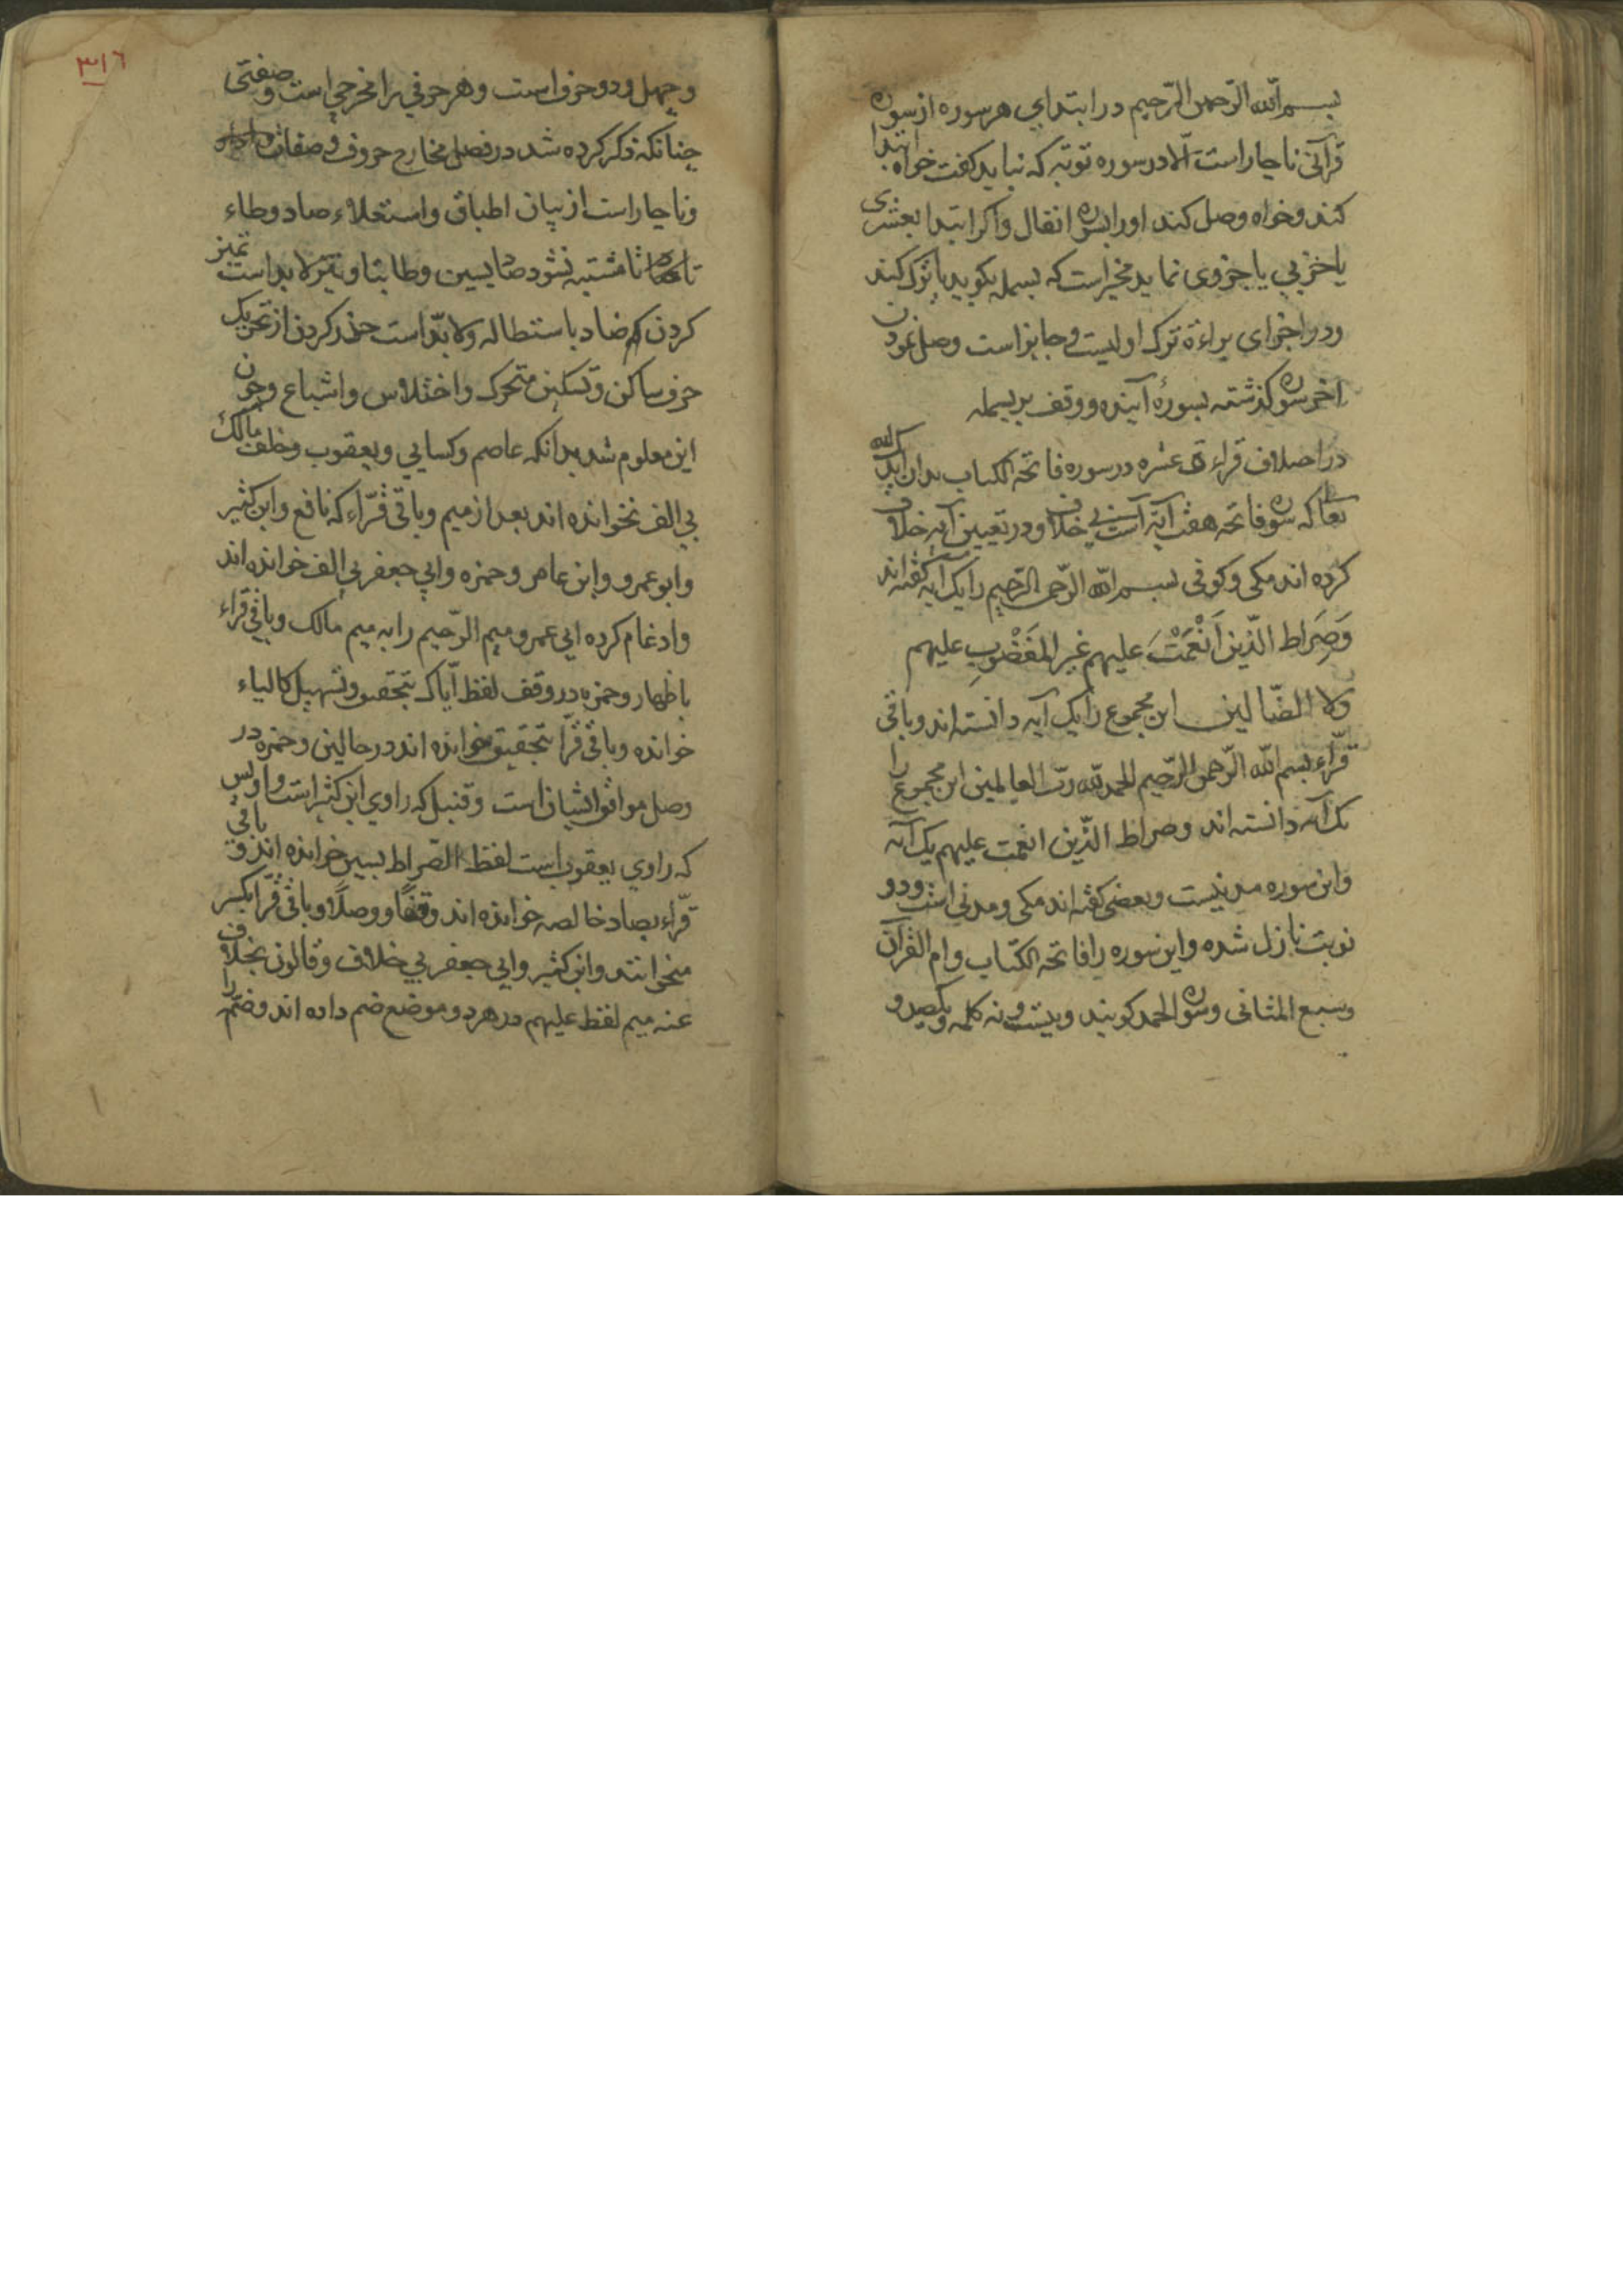 بسم الله الرّحمن الرّحیم در ابتدای هر سوره از سوره
قرآنی ناچار است الّا در سوره توبه که نباید کفت خواه ابتدا
کند و خواه وصل کند او را بسوره انفال و اکر ابتدا بعشری
یا حزبی یا جزوی نماید مخیر است که بسمله بکوید یا ترک کند
و در اجزای براءة ترک اولیست و جایز است وصل نمودن
اخر سوره کذشته بسورهٔ آینده و وقف بر بسمله
در اختلاف قراءت عشره در سوره فاتحة الکتاب بدان ایدک الله
تعا که سوره فاتحه هفت آیة است بی خلاف و در تعیین آیه خلاف
کرده اند مکی و کوفی بسم الله الرّحمن الرّحیم را یک آیه کفته اند
وَصِرَاط الّذین اَنْعَمْتَ علیهم غیر المَغضُوبِ علیهم
ولا الضّالین این مجموع را یک آیه دانسته اند و باقی
قرّاء بسم الله الرّحمن الرّحیم الحمد لله ربّ العالمین این مجموع را
یک آیه دانسته اند و صراط الّذین انعمت علیهم یک آیه
و این سوره مدنیست و بعضی کفته اند مکی و مدنی است و دو
نوبت نازل شده و این سوره را فاتحة الکتاب و ام القرآن
و سبع المثانی و سوره الحمد کویند و بیست و نه کلمه و یکصد و
٣١٦
و چهل و دو حرف است و هر حرفی را مخرجی است و صفتی
چنانکه ذکر کرده شد در فصل مخارج حروف و صفات
و ناچار است از بیان اطباق و استعلاء صاد و طاء
تا مشتبه نشود صاد بسین و طا بتا و نیز لابد است تمیز
کردن ضاد باستطاله و لابدّ است حذر کردن از تحریک
حرف ساکن و تسکین متحرک و اختلاس و اشباع و چون
این معلوم شد بدانکه عاصم و کسایی و یعقوب و خلف مالک
بی الف نخوانده اند بعد از میم و باقی قرّاء که نافع و ابن کثیر
و ابو عمرو و ابن عامر و حمزه و ابی جعفر بی الف خوانده اند
و ادغام کرده ابی عمرو میم الرّحیم را به میم مالک و باقی قرّاء
باظهار و حمزه در وقف لفظ ایّاک بتحقیق و تسهیل کالیاء
خوانده و باقی قرّا بتحقیق خوانده اند در حالین و حمزه در
وصل موافق ایشان است و قنبل که راوی ابن کثیر است و رویس
که راوی یعقوب است لفظ الصّراط بسین خوانده اند و باقی
قرّاء بصاد خالصه خوانده اند وقفًا و وصلًا و باقی قرّا بکسر
میخوانند و ابن کثیر و ابی جعفر بی خلاف و قالون بخلاف
عنه میم لفظ علیهم در هر دو موضع ضم داده اند و ضمّه را